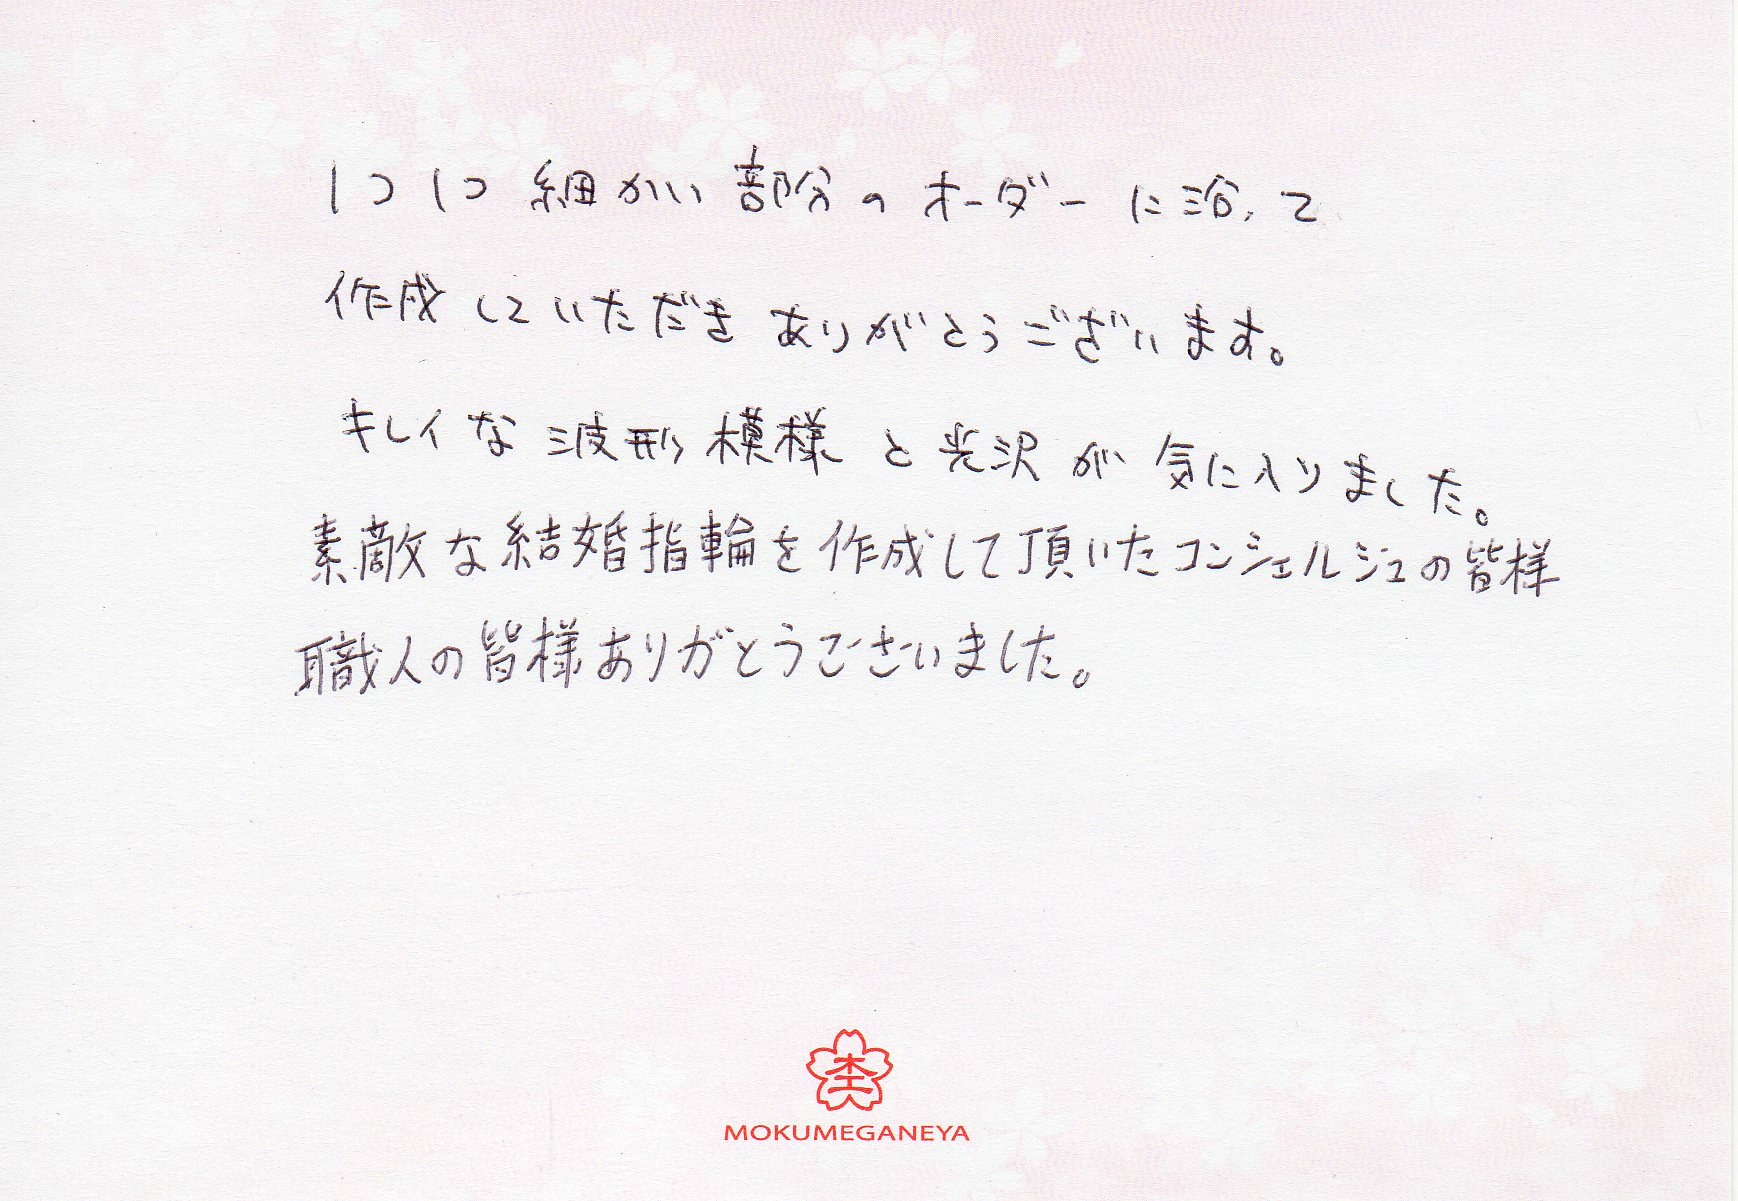 1つ1つ細かい部分のオーダーに沿って
作成していただきありがとうございます。
キレイな波形模様と光沢が気に入りました。
素敵な結婚指輪を作成して頂いたコンシェルジュの皆様
職人の皆様ありがとうございました。
MOKUMEGANEYA